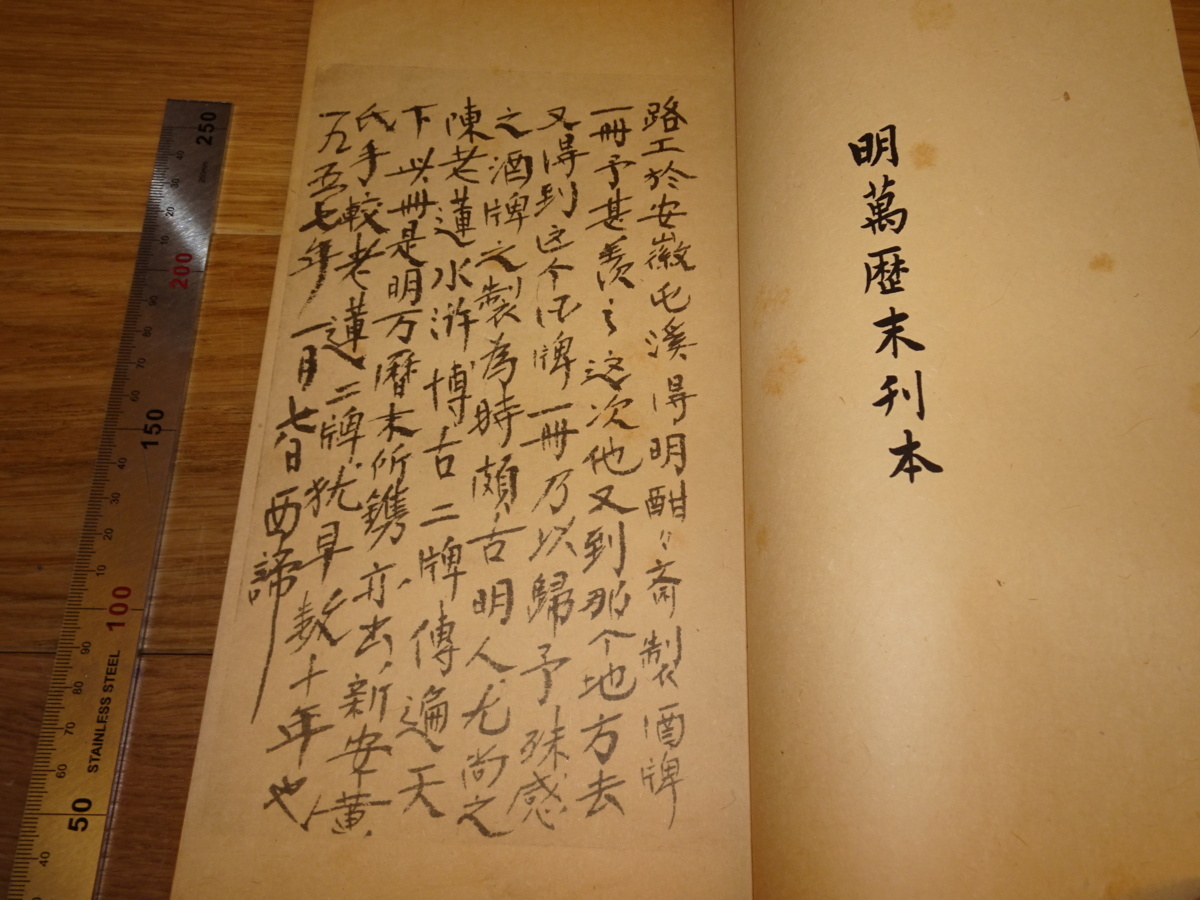 明萬歴末刊本
路工於安徽屯溪得明酣〻齋製酒牌
一冊予甚羨之这次他又到那个地方去
又得到这个酒牌一冊乃以歸予殊感
之酒牌之製為時頗古明人尤尚之
陳老蓮水滸博古二牌傳遍天
下此冊是明万曆末所鐫亦出新安黃
氏手較老蓮二牌犹早数十年也
一九五七年一月日西諦
250
200
150
100
STAINLESS STEEL
50